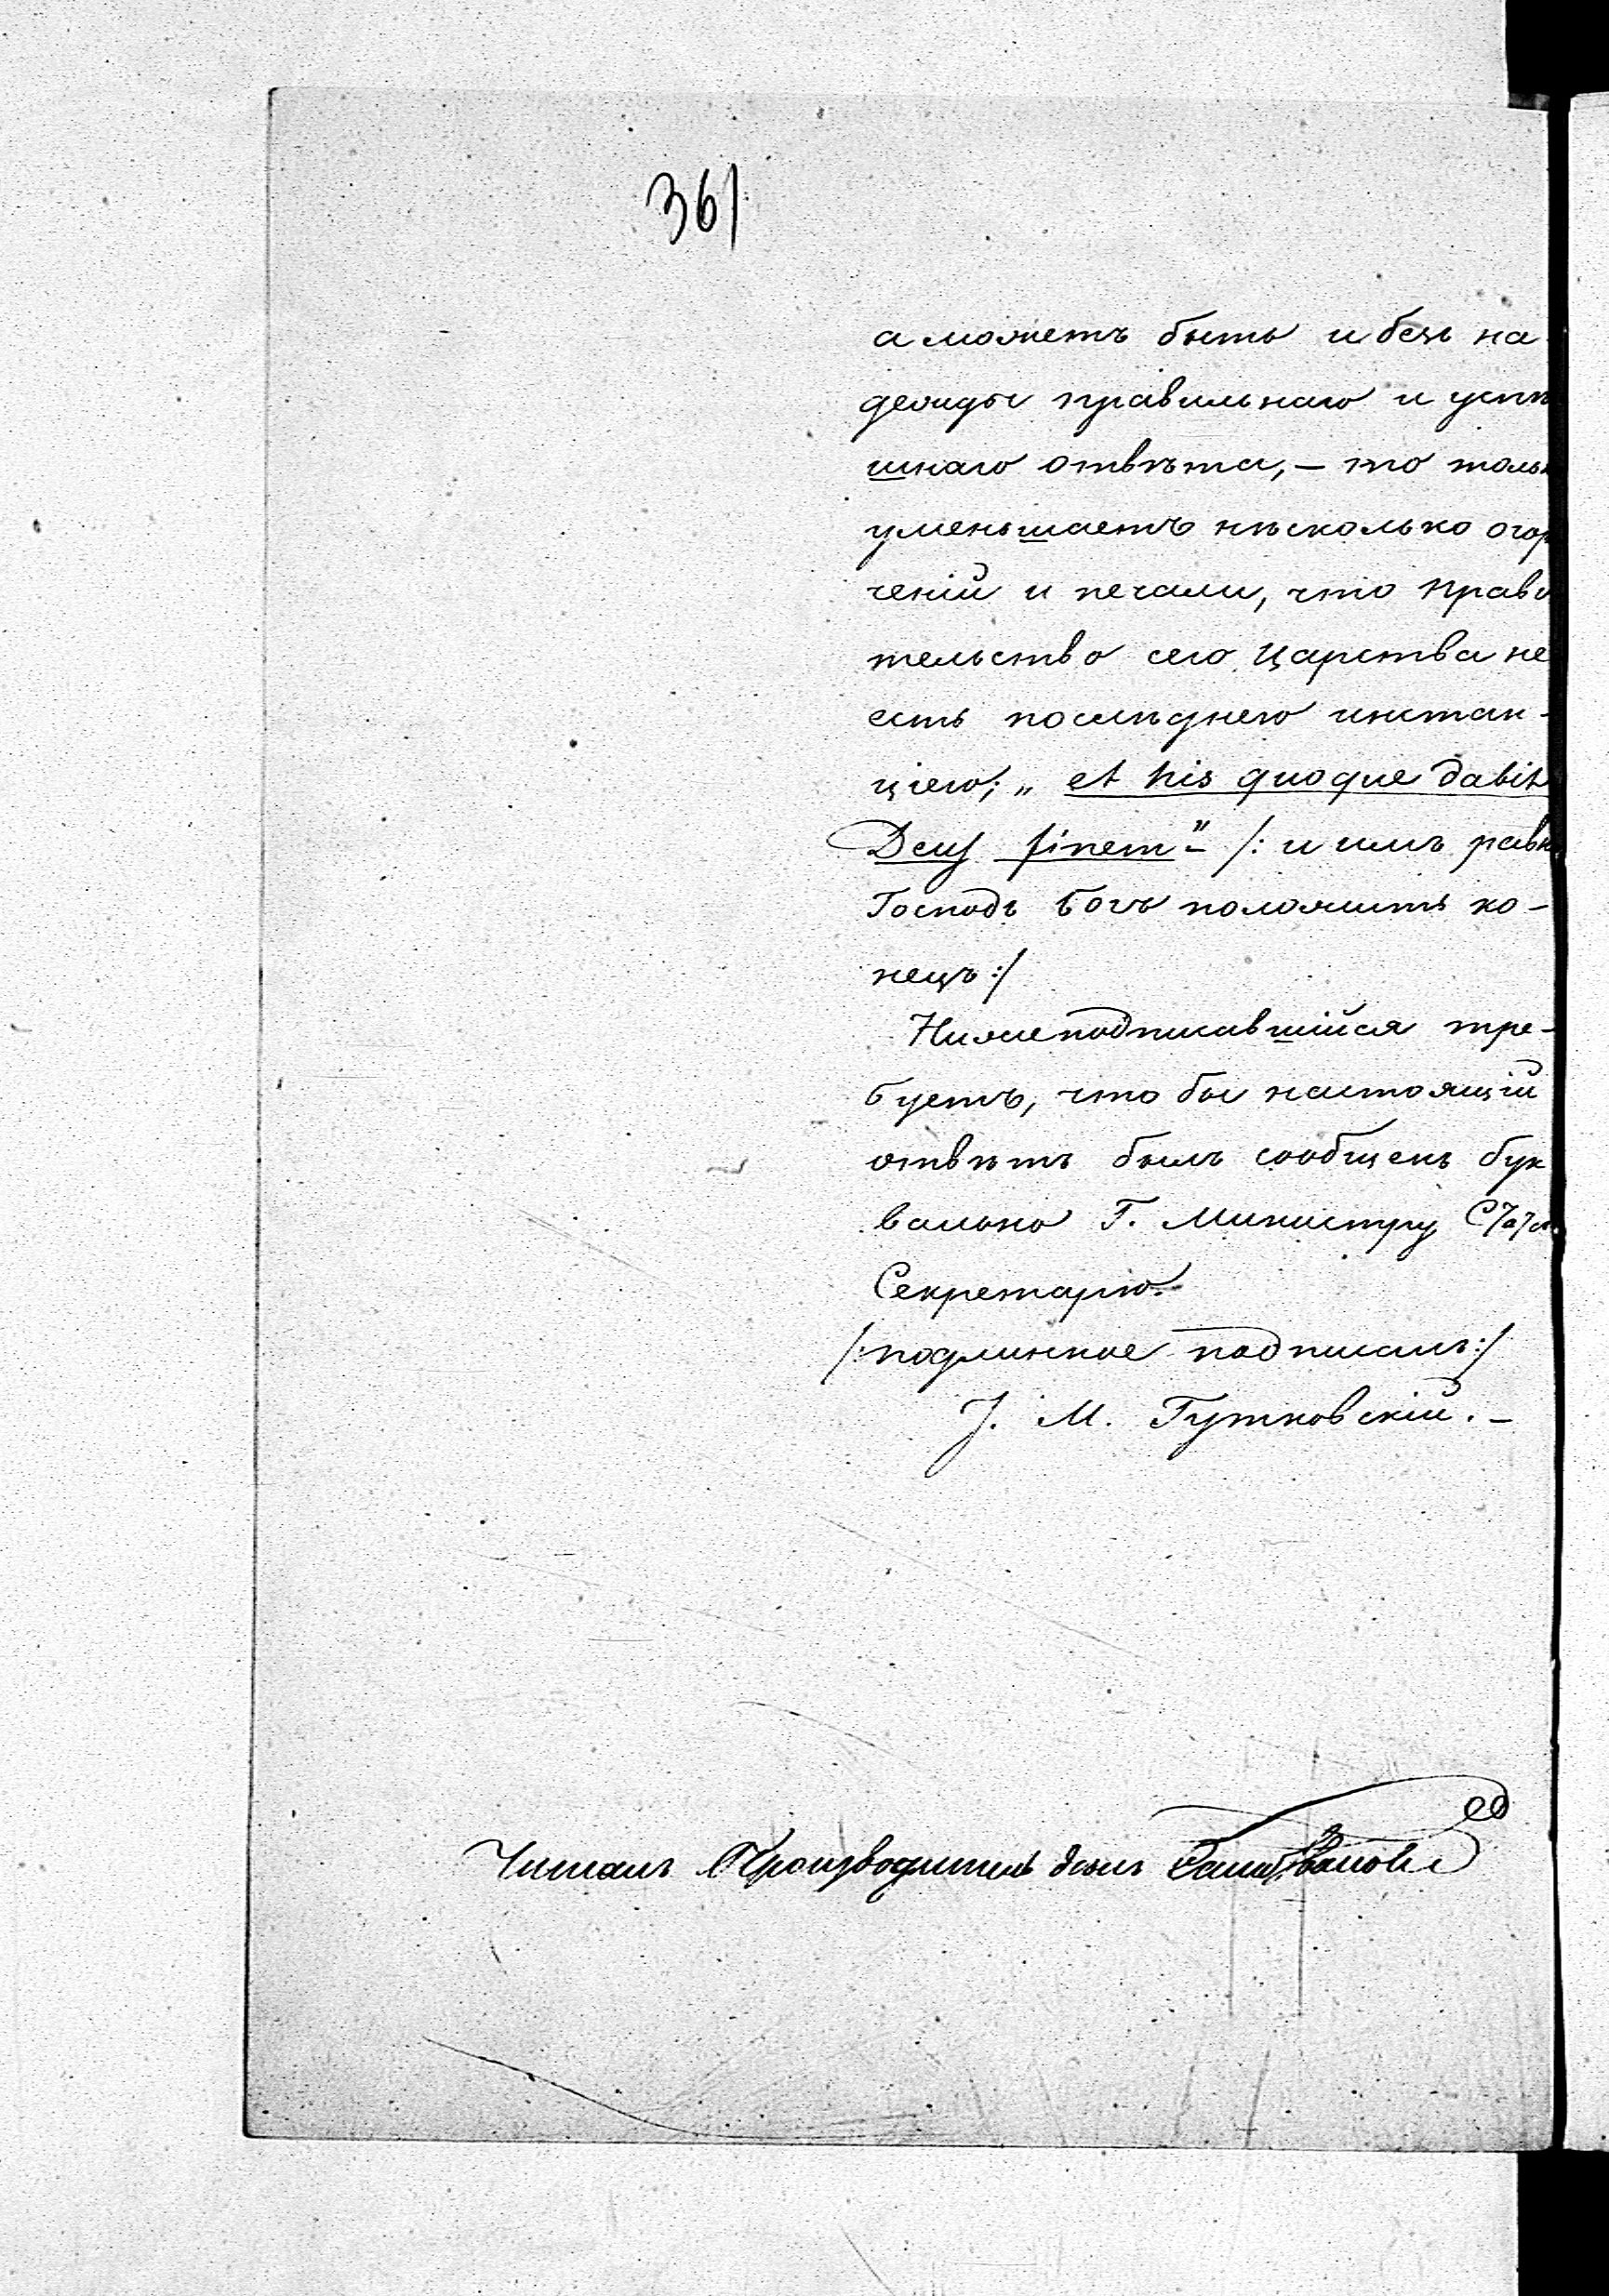 361
а можетъ быть и безъ на-
дежды правильнаго и успѣ
шнаго отвѣта, — то тольк
уменьшаетъ нѣсколько огор
ченій и печали, что прави
тельство сего Царства не
есть послѣднею инстан-
ціею; „et his quoque dabit
Deus finem“ — /: и имъ равн
Господь Богъ положитъ ко-
нецъ :/
Нижеподписавшійся тре-
буетъ, что бы настоящій
отвѣтъ былъ сообщенъ бук
вально Г. Министру Ста
Секретарю.
/: подлинное подписалъ :/
J. М. Гутковскій. —
Читалъ Производитель дѣлъ